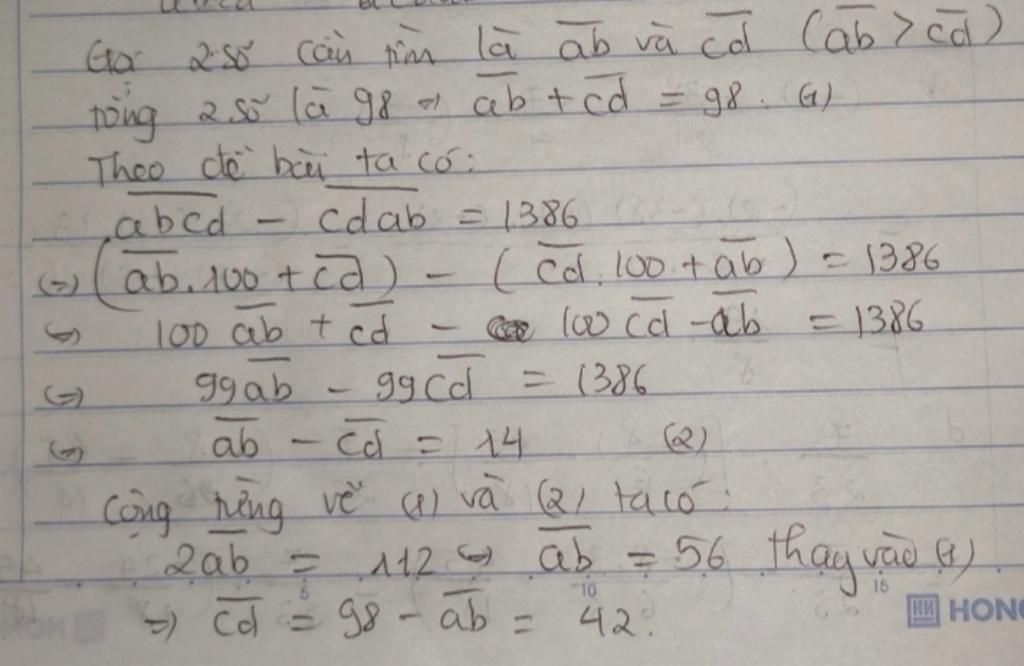 Gọi 2 số cần tìm là a̅b̅ và c̅d̅ (a̅b̅ > c̅d̅)
tổng 2 số là 98 => a̅b̅ + c̅d̅ = 98. (1)
Theo đề bài ta có:
a̅b̅c̅d̅ - c̅d̅a̅b̅ = 1386
<=> (a̅b̅.100 + c̅d̅) - (c̅d̅.100 + a̅b̅) = 1386
<=> 100 a̅b̅ + c̅d̅ - 100 c̅d̅ - a̅b̅ = 1386
<=> 99a̅b̅ - 99c̅d̅ = 1386
<=> a̅b̅ - c̅d̅ = 14 (2)
Cộng từng vế (1) và (2) ta có:
2a̅b̅ = 112 <=> a̅b̅ = 56 thay vào (1)
5 10 15
=> c̅d̅ = 98 - a̅b̅ = 42.
HONG